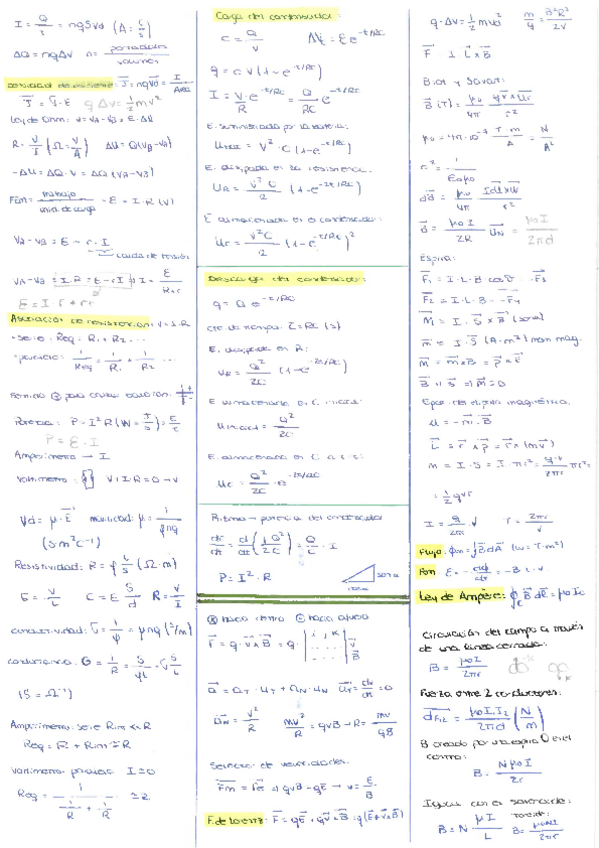 I = Q/t = nqSvd (A = C/s)
ΔQ = nqΔV n = portadores/volumen
densidad de corriente: J = nqvd = I/Área
J = σ·E qΔv = 1/2 mv²
Ley de Ohm: V = VA-VB = E·ΔL
R = V/I (Ω = V/A) ΔU = Q(VB-VA)
-ΔU = ΔQ·V = ΔQ(VA-VB)
Fem: trabajo/unidad de carga → E = I·R (V)
VA-VB = E - r·I
caída de tensión
VA-VB = I·R = E - rI ⇒ I = E/(R+r)
E = Ir + rr
Asociación de resistencias: V = I·R
- serie: Req = R1 + R2...
- paralelo: 1/Req = 1/R1 + 1/R2 ...
Potencia: P = I²R (W = J/s) = E/t
P = E·I
Amperímetro → I
Voltímetro V = I·R = 0 → V
Vd = μ·E movilidad: μ = 1/ρnq
(S m² C⁻¹)
Resistividad: R = ρ L/S (Ω·m)
E = V/L C = E S/d R = V/I
conductividad: σ = 1/ρ = μnq (S/m)
conductancia: G = 1/R = S/ρL = σ S/L
(S = Ω⁻¹)
Amperímetro: serie Rim << R
Req = R + Rim ≅ R
Voltímetro: paralelo I ≅ 0
Req = 1/(1/R + 1/R) ≅ R
Carga del condensador:
C = Q/V ΔV = E e^(-t/RC)
q = C V (1 - e^(-t/RC))
I = V/R · e^(-t/RC) = Q/RC e^(-t/RC)
E. suministrada por la batería:
Ubat = V²·C (1 - e^(-t/RC))
E. disipada en la resistencia:
UR = V²C/2 (1 - e^(-2t/RC))
E almacenada en el condensador:
Uc = V²C/2 (1 - e^(-t/RC))²
Descarga del condensador:
q = Q e^(-t/RC)
cte de tiempo: τ = RC (s)
E. disipada en R:
UR = Q²/2C (1 - e^(-2t/RC))
E almacenada en C inicial:
= Q²/2C
E. almacenada en C a t s:
Uc = Q²/2C · e^(-2t/RC)
Ritmo → potencia del condensador
dU/dt = d/dt (1/2 Q²/C) = Q/C · I
P = I²·R
⊗ hacia dentro ⊙ hacia afuera
F = q·v×B = q· | i j k |
a = aT·uT + aN·uN uT = dv/dt = 0
aN = v²/R mv²/R = qvB → R = mv/qB
Selector de velocidades
Fm = Fe ⇒ qvB = qE → v = E/B
F. de Lorentz: F = qE + qv×B = q(E+v×B)
q·Δv = 1/2 mv² m/q = B²R²/2V
F = I·L×B
Biot y Savart:
B (T) = μ0/4π qv×ur/r²
μ0 = 4π·10⁻⁷ T·m/A = N/A²
c² = 1/ε0μ0
dB = μ0/4π Idl×ur/r²
B = μ0I/2R uN = μ0I/2πd
Espira:
F1 = I·L·B cosθ = -F3
F2 = I·L·B = -F4
M = I·S×B
m = I·S (A·m²) mom mag.
M = m×B = p×E
B ∥ S ⇒ M = 0
U = -m·B
L = r×p = r×(mv)
m = I·S = I·πr² = q·v/2πr πr² =
= 1/2 qvr
I = q/2πr V T = 2πr/v
Flujo: φm = ∫B dA (W = T·m²)
Fem E = -dφ/dt = -B·L·v
Ley de Ampère: ∮ B dl = μ0 Ic
Circulación del campo a través
de una línea cerrada:
B = μ0I/2πr
Fuerza entre 2 conductores:
dF12 = μ0I1I2/2πd (N/m)
B creado por una espira en el
centro:
B = Nμ0I/2r
B = N· μI/L B = μNI/2πr